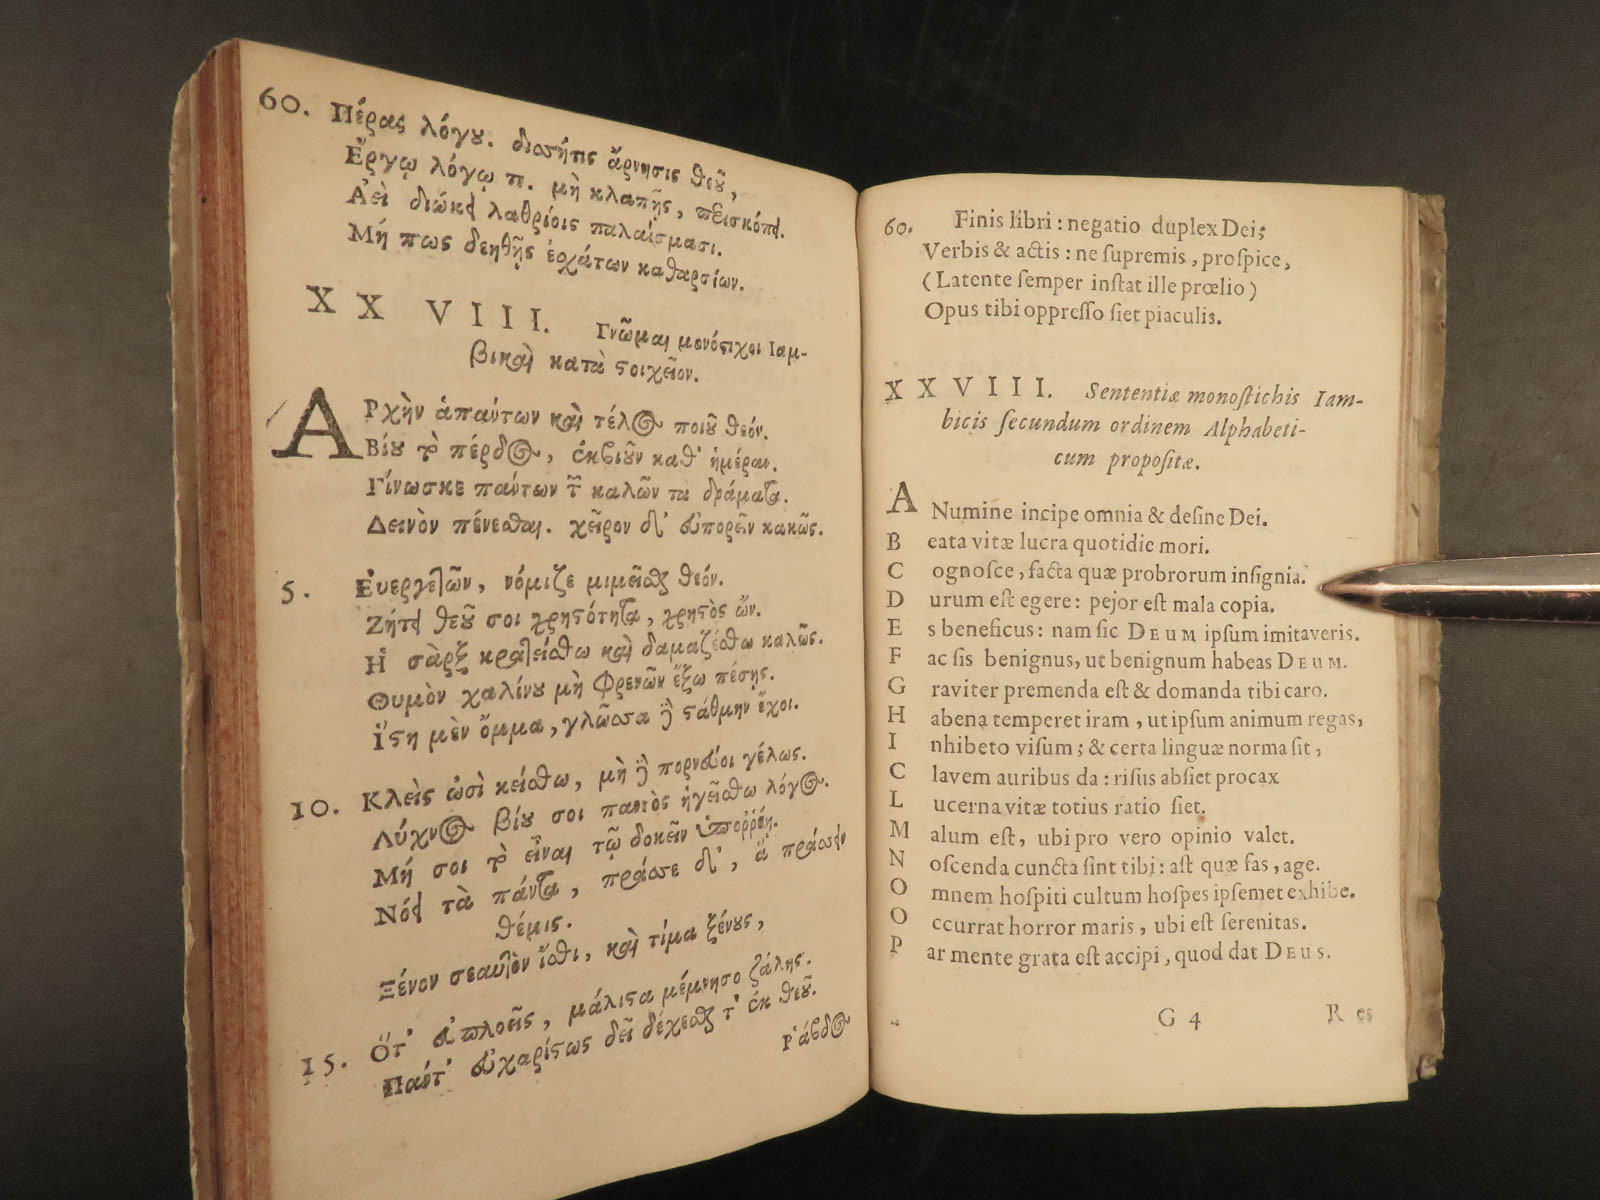 60. Πέρας λόγου. δισσή τις ἄρνησις θεοῦ,
Ἔργῳ λόγῳ π. μὴ κλαπῇς, πεισκόπει.
Ἀεὶ διώκει λαθρίοις παλαίσμασι.
Μή πως δεηθῇς ἐσχάτων καθαρσίων.
XXVIII. Γνῶμαι μονόστιχοι Ιαμ-
βικαὶ κατὰ στοιχεῖον.
ΑΡχὴν ἁπάντων καὶ τέλος ποιοῦ θεόν.
Βίου τὸ κέρδος, ἐκβιοῦν καθ' ἡμέραν.
Γίνωσκε πάντων τῶν καλῶν τὰ δράματα.
Δεινὸν πένεσθαι. χεῖρον δ' εὐπορεῖν κακῶς.
5. Εὐεργετῶν, νόμιζε μιμεῖσθαι θεόν.
Ζήτει θεοῦ σοι χρηστότητα, χρηστὸς ὤν.
Ἡ σὰρξ κρατείσθω καὶ δαμαζέσθω καλῶς.
Θυμὸν χαλίνου μὴ φρενῶν ἔξω πέσῃς.
Ἵστη μὲν ὄμμα, γλῶσσα δὲ στάθμην ἔχοι.
10. Κλεὶς ὠσὶ κείσθω, μὴ δὲ πορνεύοι γέλως.
Λύχνος βίου σοι παντὸς ἡγείσθω λόγος.
Μή σοι τὸ εἶναι τῷ δοκεῖν ὑπορρέῃ.
Νόει τὰ πάντα, πράσσε δ', ἃ πράσσειν
θέμις.
Ξένον σεαυτὸν ἴσθι, καὶ τίμα ξένους,
Ὅτ' εὐπλοεῖς, μάλιστα μέμνησο ζάλης.
15. Πάντ' εὐχαρίστως δεῖ δέχεσθαι τ' ἐκ θεοῦ.
Ῥάβδος
60. Finis libri: negatio duplex Dei;
Verbis & actis: ne supremis, prospice,
(Latente semper instat ille prœlio)
Opus tibi oppresso siet piaculis.
XXVIII. Sententiæ monostichis Iam-
bicis secundum ordinem Alphabeti-
cum propositæ.
A Numine incipe omnia & desine Dei.
B eata vitæ lucra quotidie mori.
C ognosce, facta quæ probrorum insignia.
D urum est egere: pejor est mala copia.
E s beneficus: nam sic DEUM ipsum imitaveris.
F ac sis benignus, ut benignum habeas DEUM.
G raviter premenda est & domanda tibi caro.
H abena temperet iram, ut ipsum animum regas,
I nhibeto visum; & certa linguæ norma sit,
C lavem auribus da: risus absiet procax
L ucerna vitæ totius ratio siet.
M alum est, ubi pro vero opinio valet.
N oscenda cuncta sint tibi: ast quæ fas, age.
O mnem hospiti cultum hospes ipsemet exhibe.
O ccurrat horror maris, ubi est serenitas.
P ar mente grata est accipi, quod dat DEUS.
G 4 R es